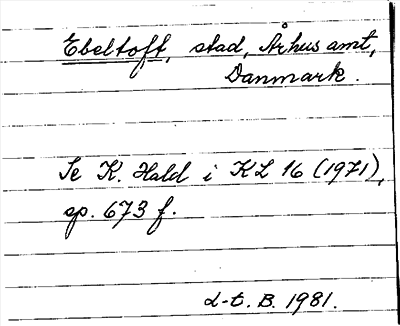 Ebeltoft, stad, Århus amt,
Danmark.
Se K. Hald i KL 16 (1971),
sp. 673 f.
L-t. B. 1981.